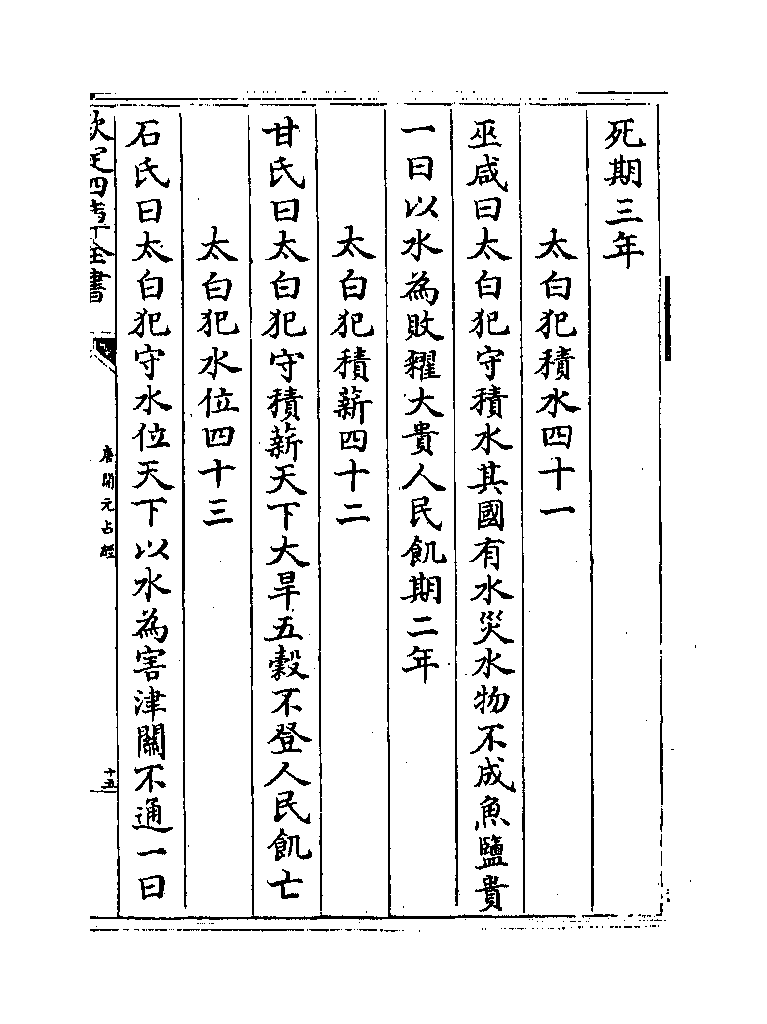 死期三年
太白犯積水四十一
巫咸曰太白犯守積水其國有水災水物不成魚鹽貴
一曰以水為敗糴大貴人民飢期二年
太白犯積薪四十二
甘氏曰太白犯守積薪天下大旱五穀不登人民飢亡
太白犯水位四十三
石氏曰太白犯守水位天下以水為害津關不通一曰
欽定四庫全書
唐開元占經
十五